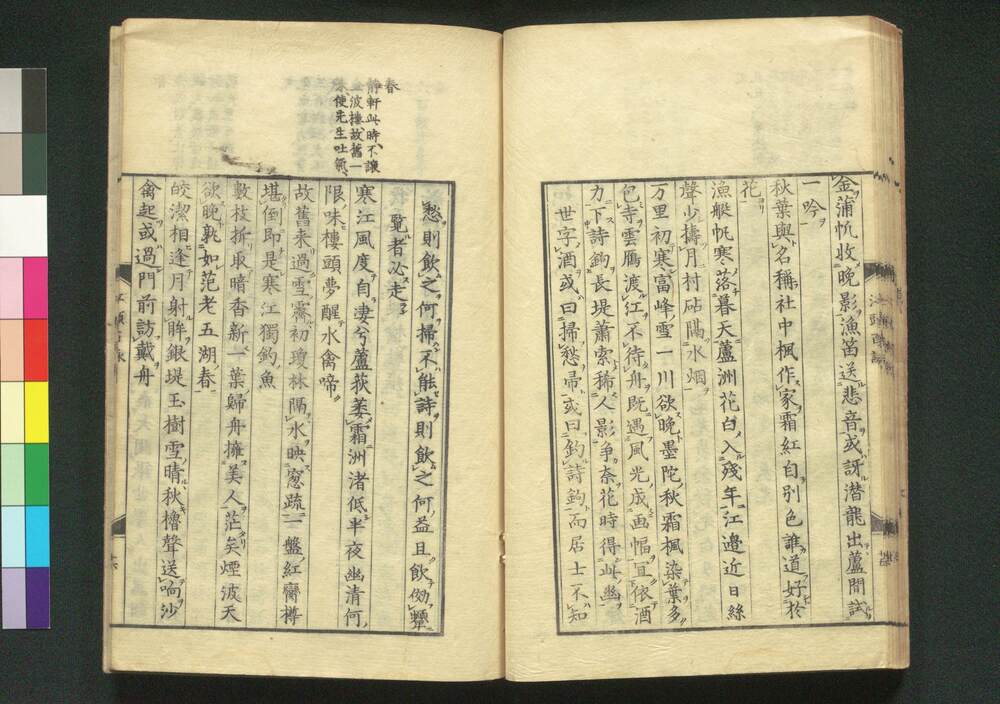 金蒲帆收晩影漁笛送悲音或訝潜龍出蘆間試
一吟
秋葉與名稱社中楓作家霜紅自別色誰道好於
花
漁艇帆寒落暮天蘆洲花白入殘年江邉近日絲
聲少擣月村砧隔水烟
万里初寒富峰雪一川欲晩墨陀秋霜楓染葉多
包寺雲鴈渡江不待舟既遇風光成画幅宜依酒
力下詩鈎長堤蕭索稀人影争奈花時得此幽
世字酒或曰掃愁帚或曰釣詩鈎而居士不知
愁則飲之何掃不能詩則飲之何益且飲
覧者必走
寒江風度自凄兮蘆荻萎霜洲渚低半夜幽清何
限味樓頭夢醒水禽啼
故舊来過雪霽初瓊林隔水映窓疏一盤紅膾樽
堪倒即是寒江獨釣魚
數枝折取暗香新一葉歸舟擁美人茫矣煙波天
欲晩孰如范老五湖春
皎潔相逢月射眸銀堤玉樹雪晴秋櫓聲送响沙
禽起或過門前訪戴舟
春
静軒此時不讓
金波樓故舊一
殊使先生吐氣